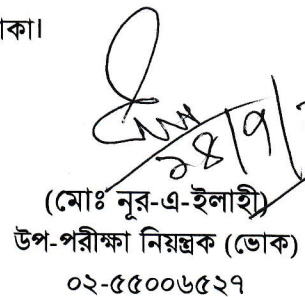 কা।
২৪/৭/
(মোঃ নূর-এ-ইলাহী)
উপ-পরীক্ষা নিয়ন্ত্রক (ভোক)
০২-৫৫০০৬৫২৭